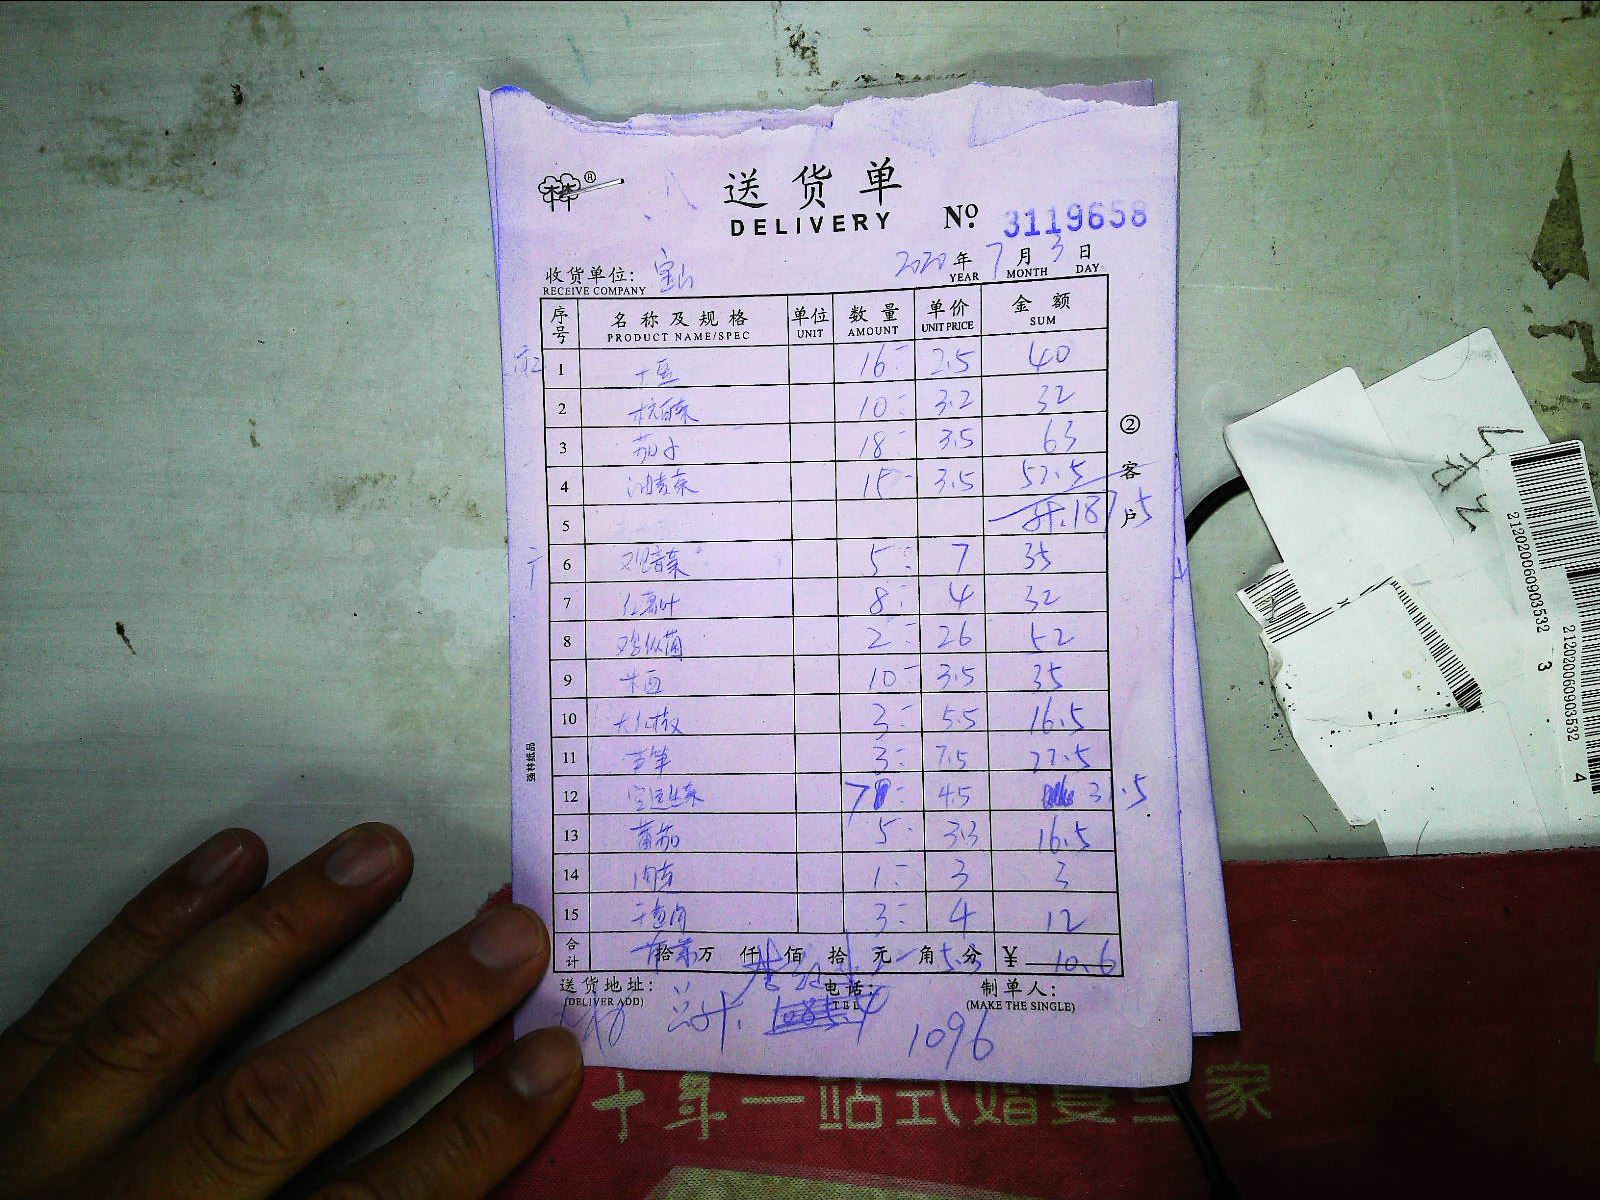 送货单
DELIVERY
№ 3119658
收货单位: 宝山 2020 年 7 月 3 日
RECEIVE COMPANY YEAR MONTH DAY
序号 名称及规格 单位 数量 单价 金额
PRODUCT NAME/SPEC UNIT AMOUNT UNIT PRICE SUM
1 土豆 16 2.5 40
2 杭白菜 10 3.2 32
3 茄子 18 3.5 63
4 油麦菜 15 3.5 52.5
5 计.187.5
6 观音菜 5 7 35
7 红薯叶 8 4 32
8 鸡枞菌 2 26 52
9 10 3.5 35
10 大红椒 3 5.5 16.5
11 芦笋 3 7.5 22.5
12 7 4.5 31.5
13 蕃茄 5 3.3 16.5
14 1 3 3
15 3 4 12
合计 拾 万 仟 佰 拾 元 角 5.3 分 ¥ 10.6
送货地址: 电话: 制单人:
(DELIVER ADD) TEL (MAKE THE SINGLE)
总计. 1096
② 客户
强林纸品
212020060903532 3
212020060903532 4
十年一站式婚宴专家